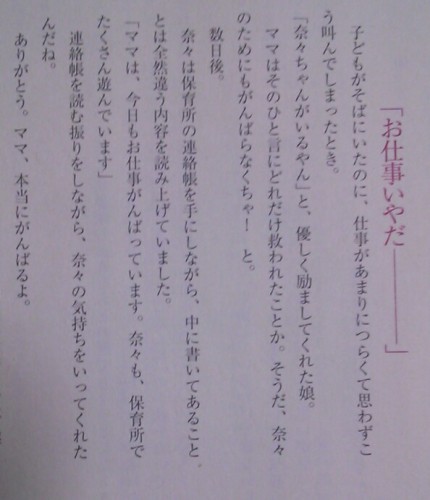 「お仕事いやだ――――」
子どもがそばにいたのに、仕事があまりにつらくて思わずこ
う叫んでしまったとき。
「奈々ちゃんがいるやん」と、優しく励ましてくれた娘。
ママはそのひと言にどれだけ救われたことか。そうだ、奈々
のためにもがんばらなくちゃ！　と。
数日後。
奈々は保育所の連絡帳を手にしながら、中に書いてあること
とは全然違う内容を読み上げていました。
「ママは、今日もお仕事がんばっています。奈々も、保育所で
たくさん遊んでいます」
連絡帳を読む振りをしながら、奈々の気持ちをいってくれた
んだね。
ありがとう。ママ、本当にがんばるよ。